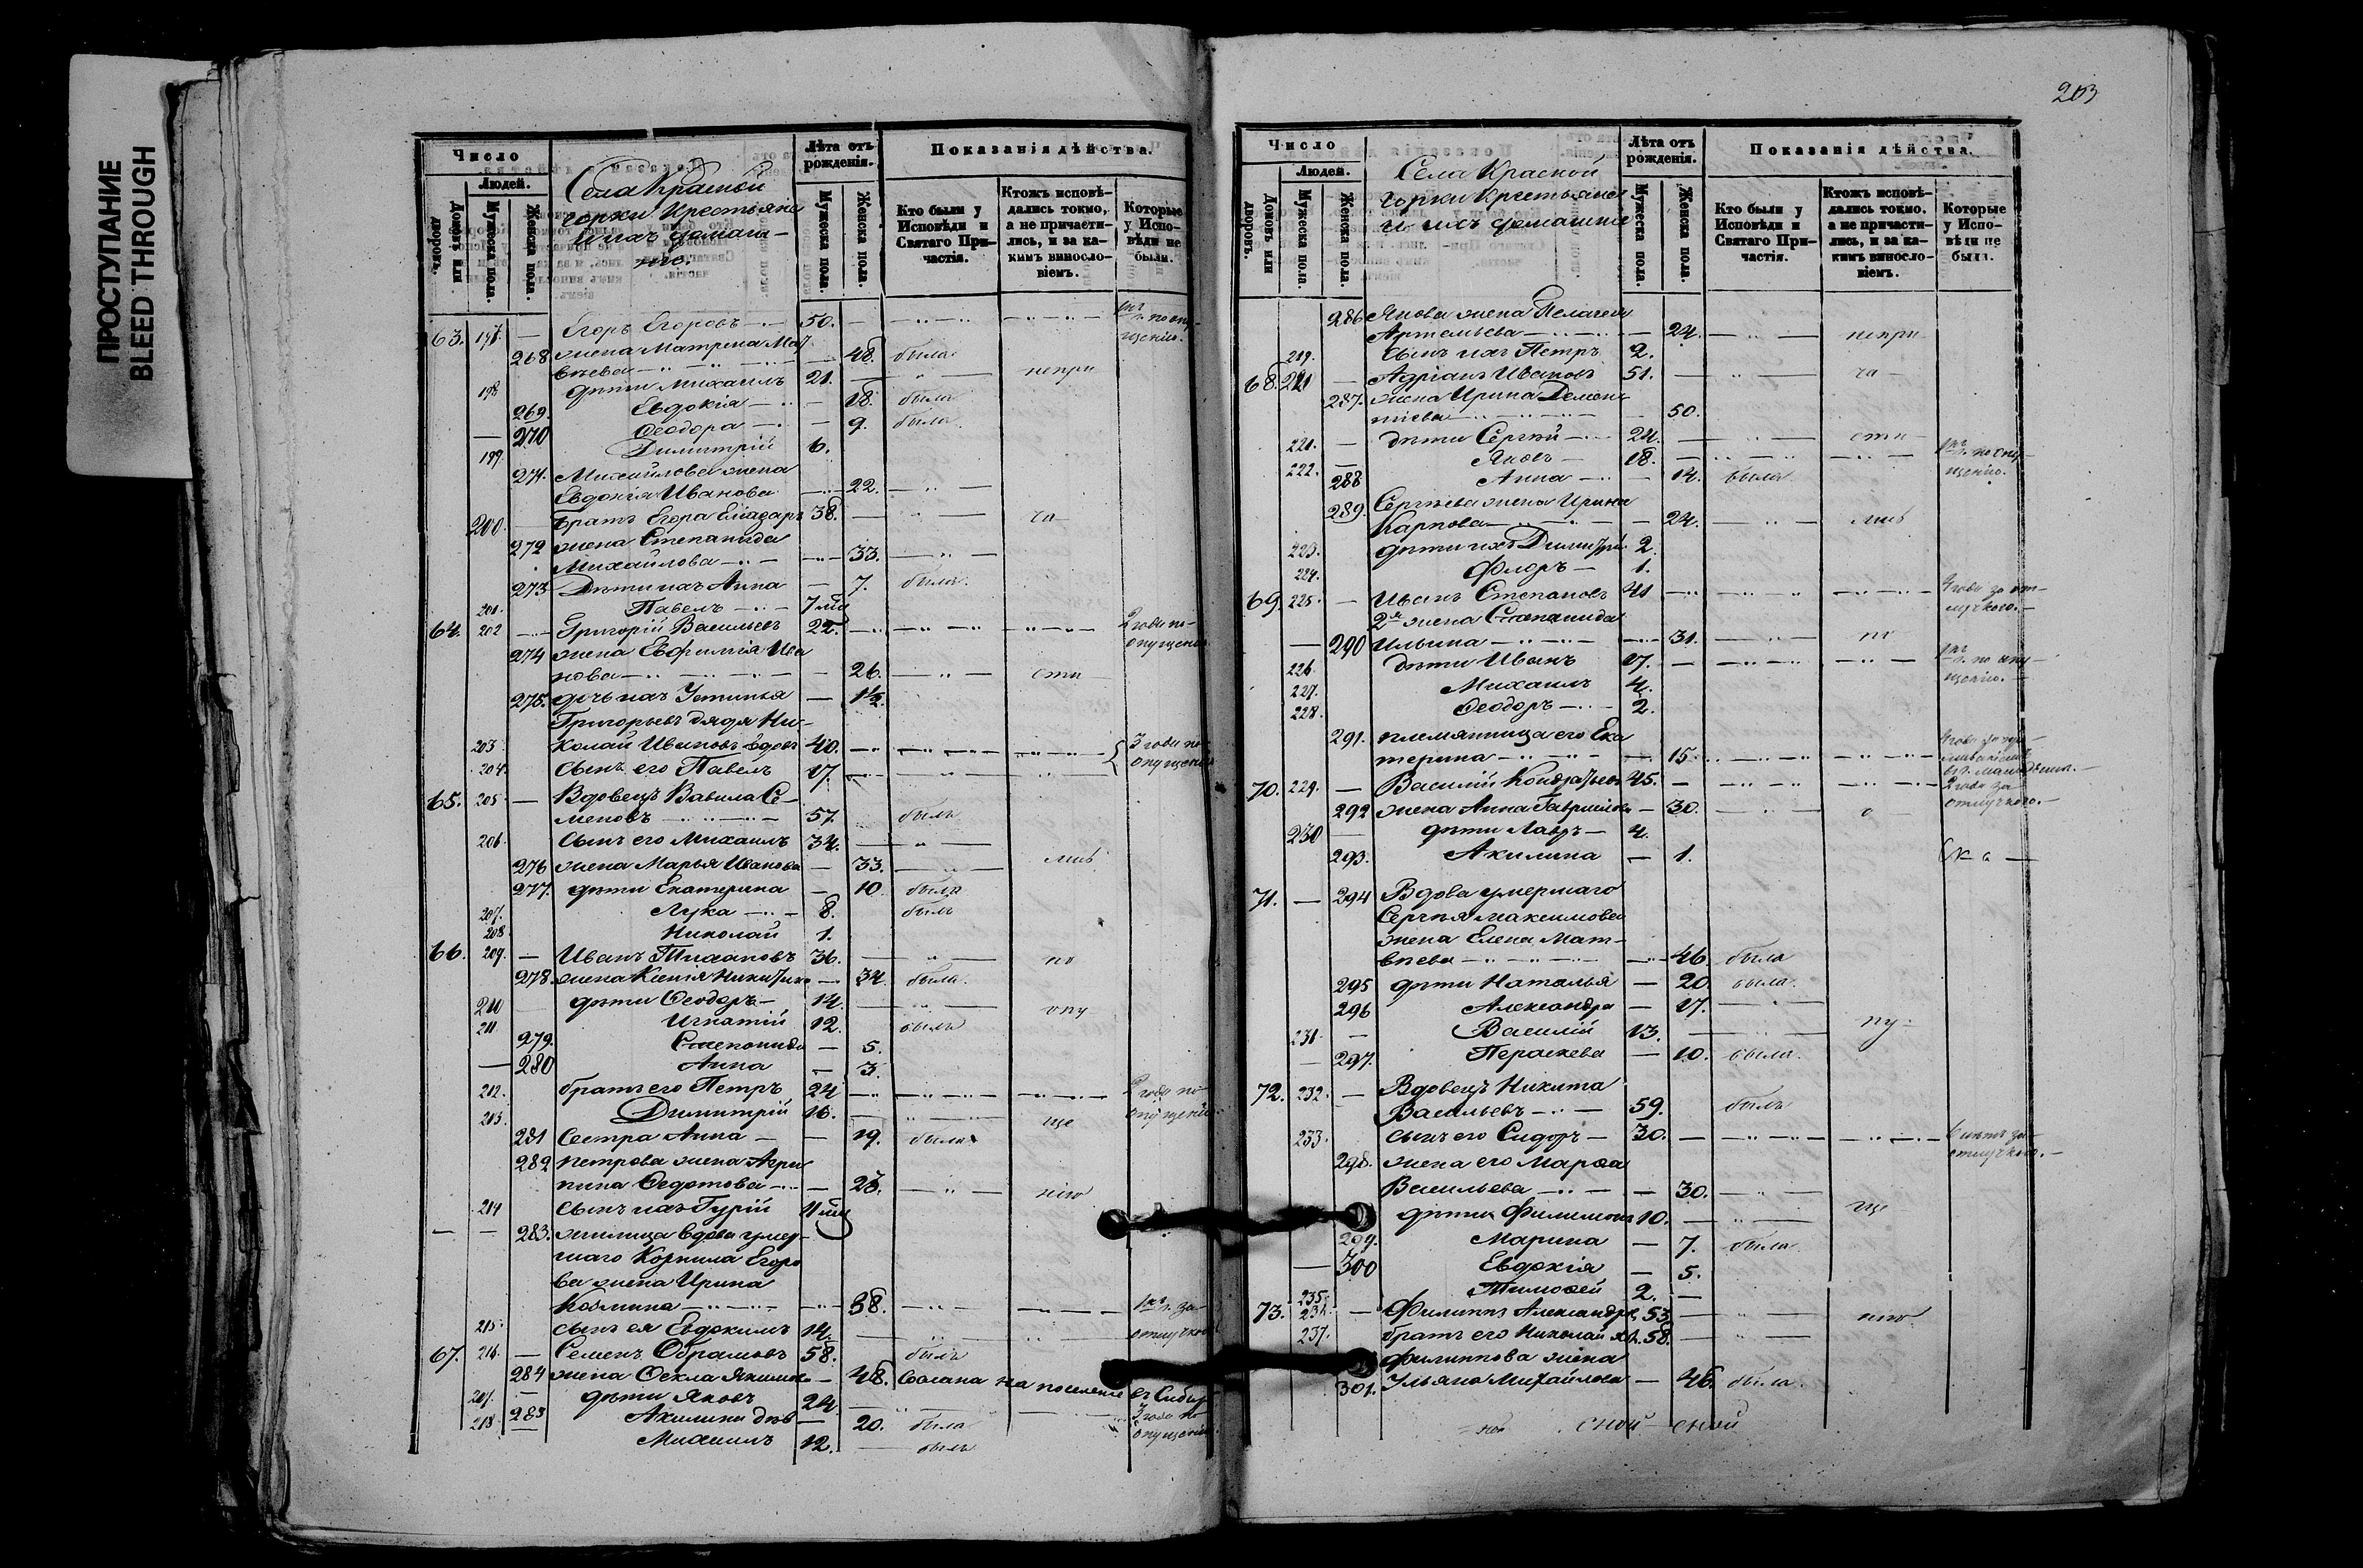 ПРОСТУПАНИЕ
BLEED THROUGH
Число
Людей.
Домовъ или дворовъ.
Мужеска пола.
Женска пола.
Села Красной
горки Крестьяне
и ихъ домаш-
ніе.
Лѣта отъ рожденія.
Мужеска пола.
Женска пола.
Показанія дѣйства.
Кто были у Исповѣди и Святаго При-частія.
Ктожъ исповѣ-дались токмо, а не причасти-лись, и за ка-кимъ винословіемъ.
Которые у Испо-вѣди не были.
63. 197. — Егоръ Егоровъ 50.
268 жена Матрена Мат
вѣева 48. была
198 дѣти Михаилъ 21. непри
269. Евдокія 18. была
270 Ѳеодора 9. была
199. Димитрій 6.
271. Михайлова жена
Евдокія Иванова 22.
200. братъ Егора Елиазаръ 38. ча
272 жена Степанида
Михайлова 33.
273 Дѣти ихъ Анна 7. была.
201. Павелъ 7
64. 202 Григорій Васильевъ 22. 2 года по
опущенію
274 жена Евфимія Ива
нова 26. сти
275. дочь ихъ Устинья 1½
Григорьевъ дядя Ни-
203 колай Ивановъ вдов 40. 3 года по
204. сынъ его Павелъ 17. опущенію
65. 205 — Вдовецъ Вавила Се-
меновъ 57. былъ
206. сынъ его Михаилъ 34.
276 жена Марья Иванова 33. лись
277. дѣти Екатерина 10 была
207. Лука 8. былъ
208 Николай 1.
66. 209. — Иванъ Тихановъ 36. по
278. жена Ксенія Никитина 34. была.
210 дѣти Ѳеодоръ 14. опу
211 Игнатій 12. былъ
279. Степанида 5.
280 Анна 3.
212. братъ его Петръ 24 2 года по
213. Димитрій 16. ще опущенію
281 Сестра Анна 19. была
282 Петрова жена Агри
пина Ѳедотова 25. нію
214 сынъ ихъ Гурій 11
283. жилица вдова умер-
шаго Корнила Егоро
ва жена Ирина
Козмина 38.
215. сынъ ея Евдокимъ 14. отлучкою
67. 216. — Семенъ Обрамовъ 58. былъ
284 жена Ѳекла Якимова 48. Сослана на поселеніе въ Сибирь
217. дѣти Яковъ 24. 3 года по
285 Акилина дѣв 20. была опущенію
218. Михаилъ 12. былъ
203
Число
Людей.
Домовъ или дворовъ.
Мужеска пола.
Женска пола.
Села Красной
горки Крестьяне
и ихъ домашніе
Лѣта отъ рожденія.
Мужеска пола.
Женска пола.
Показанія дѣйства.
Кто были у Исповѣди и Святаго При-частія.
Ктожъ исповѣ-дались токмо, а не причасти-лись, и за ка-кимъ винословіемъ.
Которые у Испо-вѣди не были.
286 Якова жена Пелагея
Артемьева 24. непри
219. сынъ ихъ Петръ 2.
68. Адріанъ Ивановъ 51. ча
287. жена Ирина Демен
тіева 50.
221. — дѣти Сергѣй 24. сти
222. — Яковъ 18. по опу-
щенію.
288 Анна 14. была
289. Сергѣева жена Ирина
Карпова 24. лись
223. дѣти ихъ Димитрій 2.
224. Флоръ 1.
69. 225. — Иванъ Степановъ 41 за от-
лучкою.
2я жена Степанида
290 Ильина 31. по
226. дѣти Иванъ 17. по опу-
щенію.
227. Михаилъ 4.
228. Ѳеодоръ 2.
291. племянница его Ека
терина 15.
70. 229. — Василій Кондратьевъ 45. 2 года за
отлучкою.
292 жена Анна Гаврилова 30. о
230 — дѣти Лавръ 4.
293. Акилина — 1.
71. — 294 Вдова умершаго
Сергѣя Максимова
жена Елена Мат-
вѣева 46. была
295 дѣти Наталья 20. была.
296 Александра 17.
231. — Василій 13. пу-
297. Параскева 10. была.
72. 232. — Вдовецъ Никита
Васильевъ 59. былъ
233. сынъ его Сидоръ 30. 6 лѣтъ за
отлучкою.
298. жена его Марѳа
Васильева 30.
дѣти Филимонъ 10. ще
299. Марина 7. была
300 Евдокія 5.
235. Тимоѳей 2.
73. — Филиппъ Александр. 53. нію
237. братъ его Николай 58.
Филиппова жена
301. Ульяна Михайлова 46. была.
ной сной сной